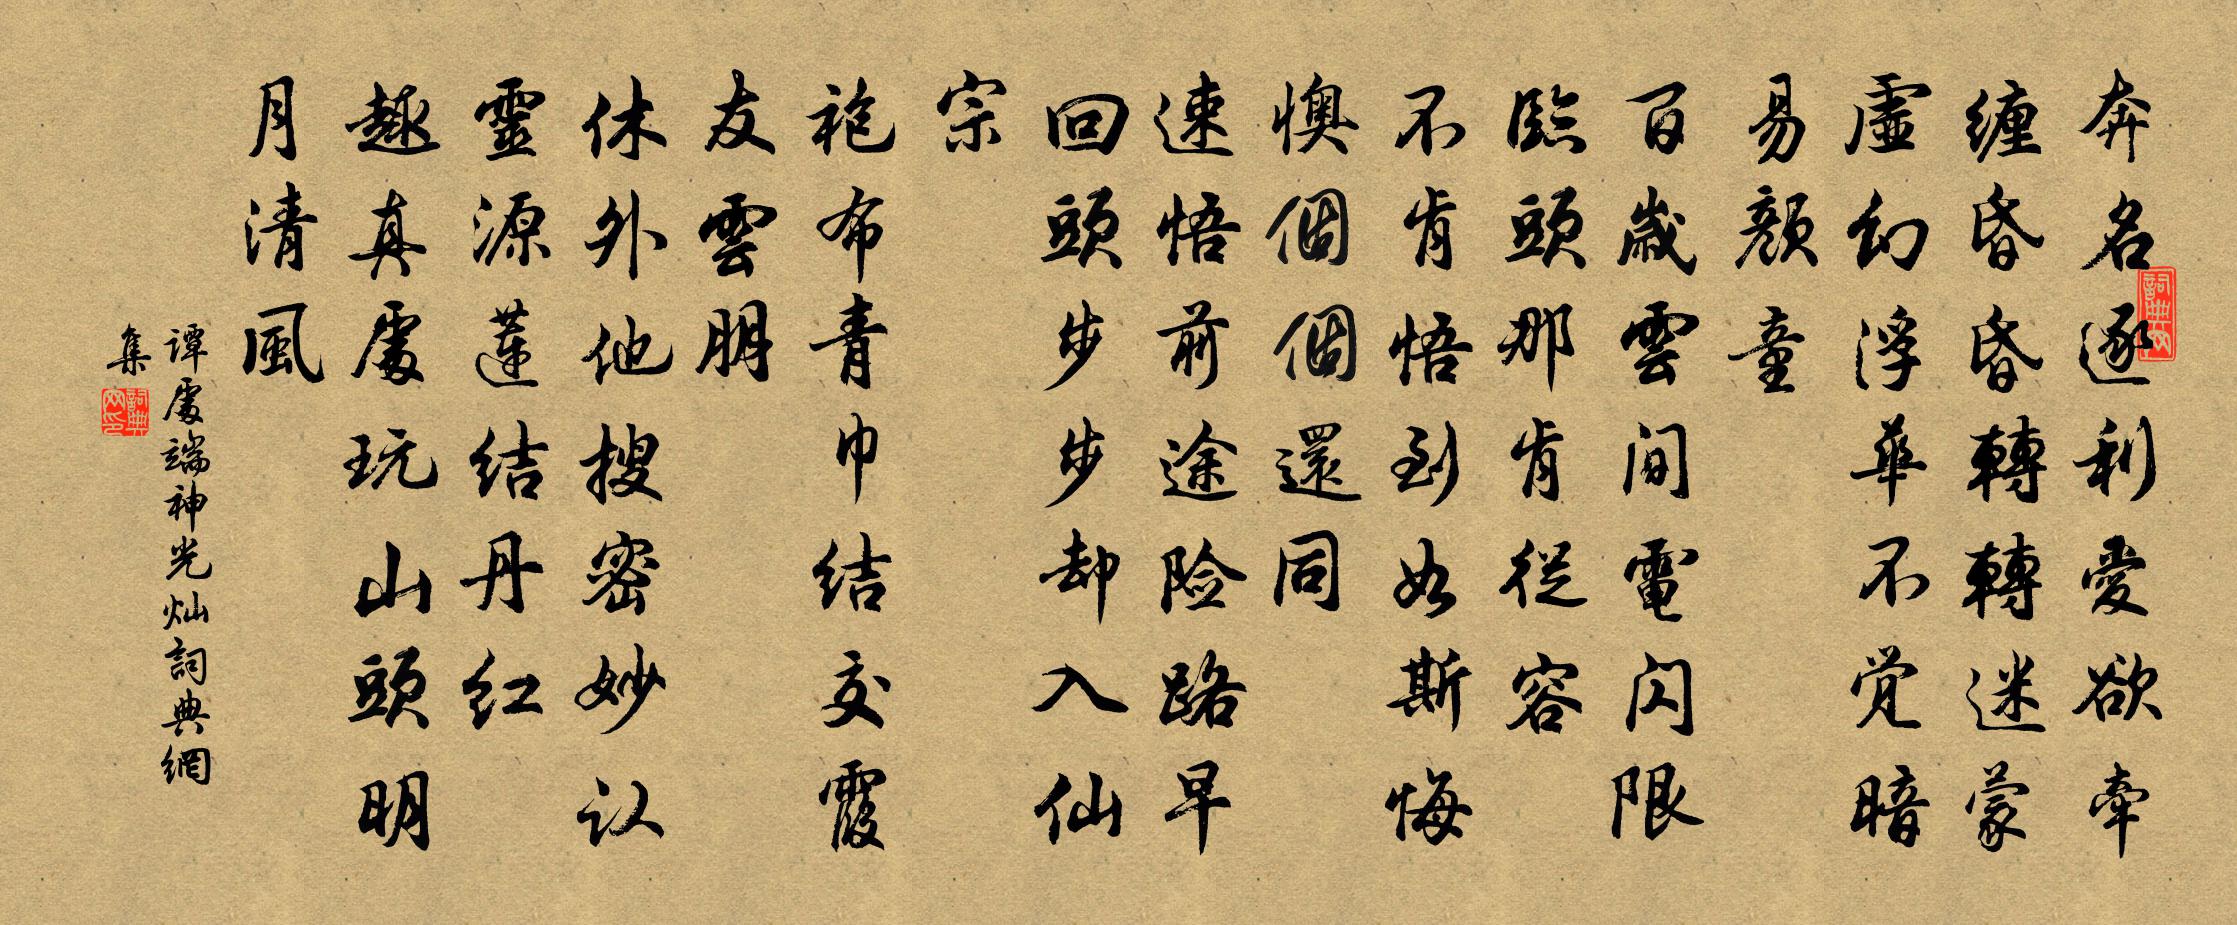 奔名逐利愛欲牽
纏昏昏轉轉迷蒙
虛幻浮華不觉暗
易顏童
百歲雲间電闪限
臨頭那肯從容
不肯悟到如斯悔
懊個個還同
速悟前途险路早
回頭步步却入仙
宗
袍布青巾结交霞
友雲朋
休外他搜密妙认
靈源莲结丹红
趣真處玩山頭明
月清風
谭處端神光灿詞典網
集
詞典网
詞典网印